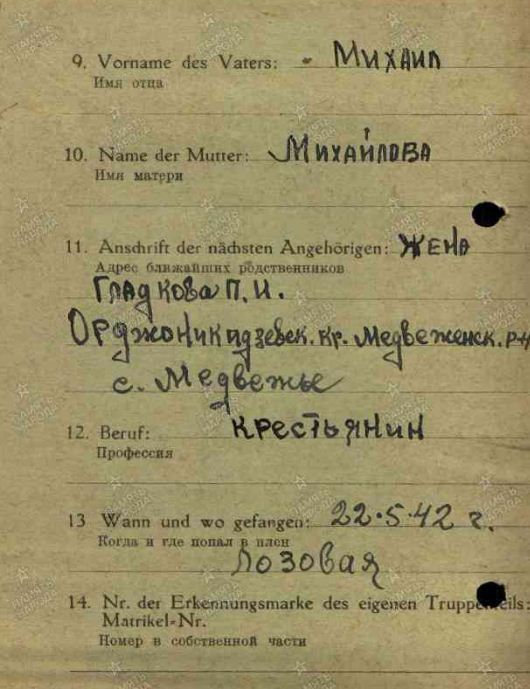 9. Vorname des Vaters: Михаил
Имя отца
10. Name der Mutter: Михайлова
Имя матери
11. Anschrift der nächsten Angehörigen: жена
Адрес ближайших родственников
Гладкова П. И.
Орджоникидзевск. кр. Медвеженск. р-н
с. Медвежье
12. Beruf: крестьянин
Профессия
13 Wann und wo gefangen: 22.5.42 г.
Когда и где попал в плен
Лозовая
14. Nr. der Erkennungsmarke des eigenen Truppenteils:
Matrikel-Nr.
Номер в собственной части